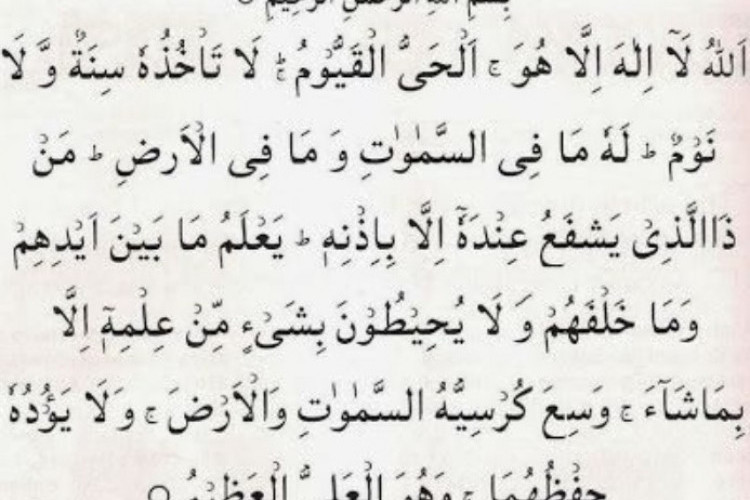 بِسْمِ اللهِ الرَّحْمٰنِ الرَّحِيْمِ ○
اَللهُ لَآ اِلٰهَ اِلَّا هُوَ ۚ اَلْحَىُّ الْقَيُّوْمُ ۚ لَا تَاْخُذُهٗ سِنَةٌ وَّ لَا
نَوْمٌ ؕ لَهٗ مَا فِى السَّمٰوٰتِ وَ مَا فِى الْاَرْضِ ؕ مَنْ
ذَاالَّذِىْ يَشْفَعُ عِنْدَهٗٓ اِلَّا بِاِذْنِهٖ ؕ يَعْلَمُ مَا بَيْنَ اَيْدِهِمْ
وَمَا خَلْفَهُمْ وَ لَا يُحِيْطُوْنَ بِشَىْءٍ مِّنْ عِلْمِهٖٓ اِلَّا
بِماشَآءَ ۚ وَسِع كُرْسِيُّهُ السَّمٰوٰتِ وَالْاَرْضَ ۚ وَ لَا يَؤُدُهٗ
حِفْظُهُمَا ۚ وَهُوَ الْعَلِىُّ الْعَظِيْمُ ○